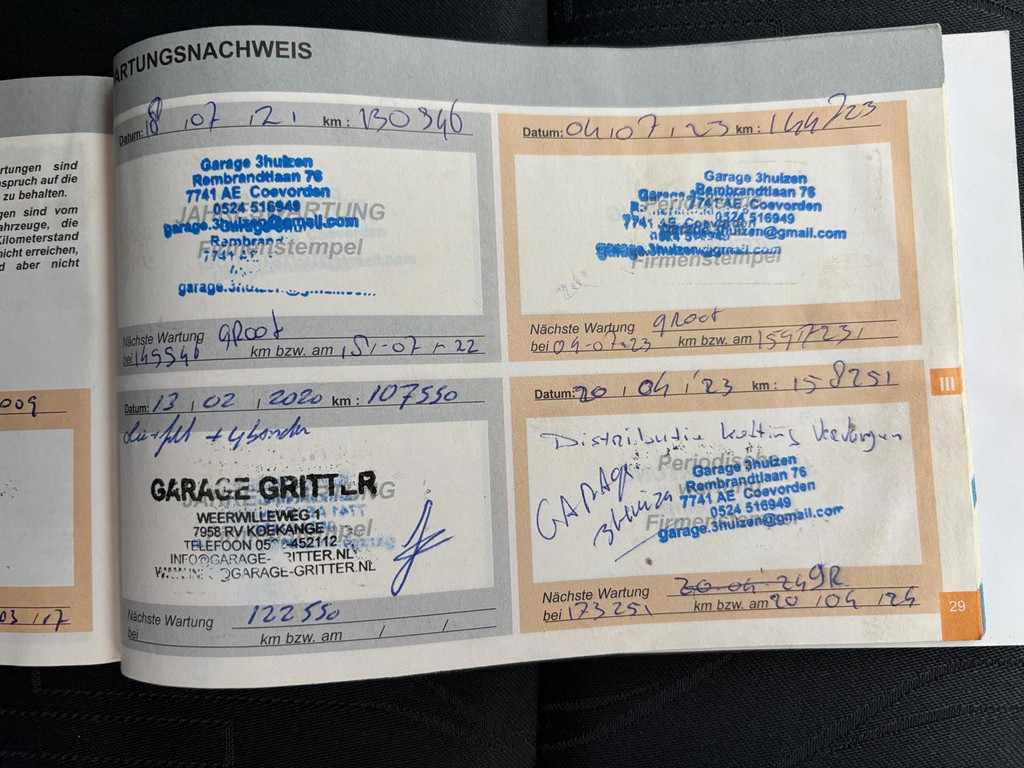 WARTUNGSNACHWEIS
rtungen sind
nspruch auf die
zu behalten.
gen sind vom
ahrzeuge, die
Kilometerstand
nicht erreichen,
d aber nicht
009
03 17
Datum: 18 07 21 km : 130346
Garage 3huizen
Rembrandtlaan 76
7741 AE Coevorden
0524 516949
garage.3huizen@gmail.com
JAHRESWARTUNG
Firmenstempel
Nächste Wartung groot
bei 145546 km bzw. am 15 07 22
Datum: 04 07 23 km : 144723
Garage 3huizen
Rembrandtlaan 76
7741 AE Coevorden
0524 516949
garage.3huizen@gmail.com
Firmenstempel
Nächste Wartung groot
bei 04-07-23 km bzw. am 159723
Datum: 13 02 2020 km : 107550
GARAGE GRITTER
WEERWILLEWEG 1
7958 RV KOEKANGE
TELEFOON 05 452112
INFO@GARAGE-GRITTER.NL
GARAGE-GRITTER.NL
Nächste Wartung 122550
bei / km bzw. am / /
Datum: 20 04 '23 km : 158251
Distributie ketting Vervangen
GARAGE
3huizen
Periodische
Garage 3huizen
Rembrandtlaan 76
7741 AE Coevorden
0524 516949
garage.3huizen@gmail.com
Firmenstempel
Nächste Wartung 20-04-24 GR
bei 173251 km bzw. am 20 04 24
III
29